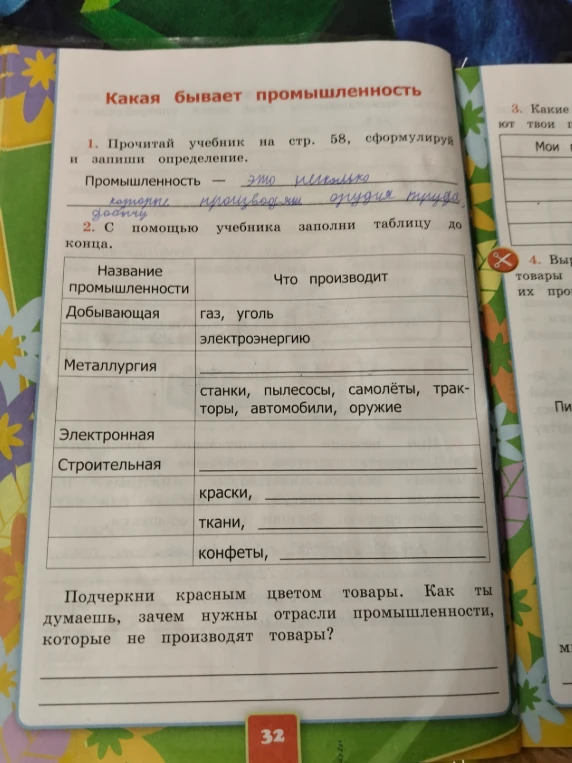 Какая бывает промышленность
1. Прочитай учебник на стр. 58, сформулируй
и запиши определение.
Промышленность — это
которые производят орудия труда,
добычу
2. С помощью учебника заполни таблицу до
конца.
Название
промышленности
Что производит
Добывающая
газ, уголь
электроэнергию
Металлургия
станки, пылесосы, самолёты, трак-
торы, автомобили, оружие
Электронная
Строительная
краски,
ткани,
конфеты,
Подчеркни красным цветом товары. Как ты
думаешь, зачем нужны отрасли промышленности,
которые не производят товары?
32
3. Какие
ют твои
Мои
4.
товары
их